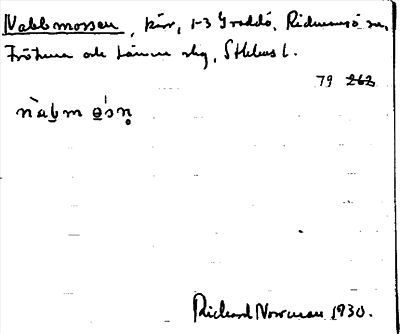 Nabbmossen, kärr, 1-3 Graddö, Rådmansö sn,
Frötuna och Länna skg, Sthlms l.
79 262
nàbm ós
Richard Norrman 1930.